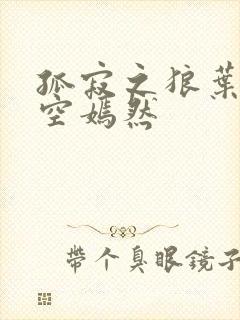 孤寂之狼葉
空嫣然
帶个臭眼鏡子